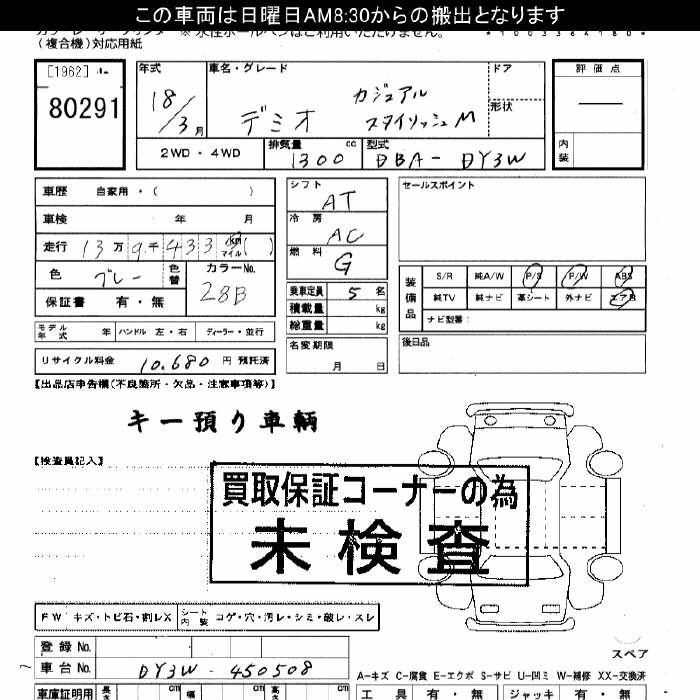 この車両は日曜日AM8:30からの搬出となります
(複合機)対応用紙
[1962]
80291
年式
18/3月
車名・グレード
デミオ
カジュアル
スタイリッシュM
ドア
形状
評価点
内装
2WD・4WD
排気量 1300 cc
型式 DBA-DY3W
車歴 自家用・( )
車検 年 月
走行 13万9千433 km マイル ( )
色 グレー
色替
カラーNo. 28B
保証書 有・無
シフト AT
冷房 AC
燃料 G
乗車定員 5名
積載量 kg
総重量 kg
セールスポイント
装備品
S/R 純A/W P/S P/W ABS
純TV 純ナビ 革シート 外ナビ エアB
ナビ型番:
モデル年式 年 ハンドル 左・右 ディーラー・並行
リサイクル料金 10,680 円 預託済
名変期限 月 日
後日品
【出品店申告欄(不良箇所・欠品・注意事項等)】
キー預り車輌
【検査員記入】
買取保証コーナーの為
未検査
FW キズ・トビ石・割レX
シート内装 コゲ・穴・汚レ・シミ・破レ・スレ
登録No.
車台No. DY3W-450508
スペア
A-キズ C-腐食 E-エクボ S-サビ U-凹ミ W-補修 XX-交換済
車庫証明用 長さ cm 幅 cm 高さ cm
工具 有・無 ジャッキ 有・無